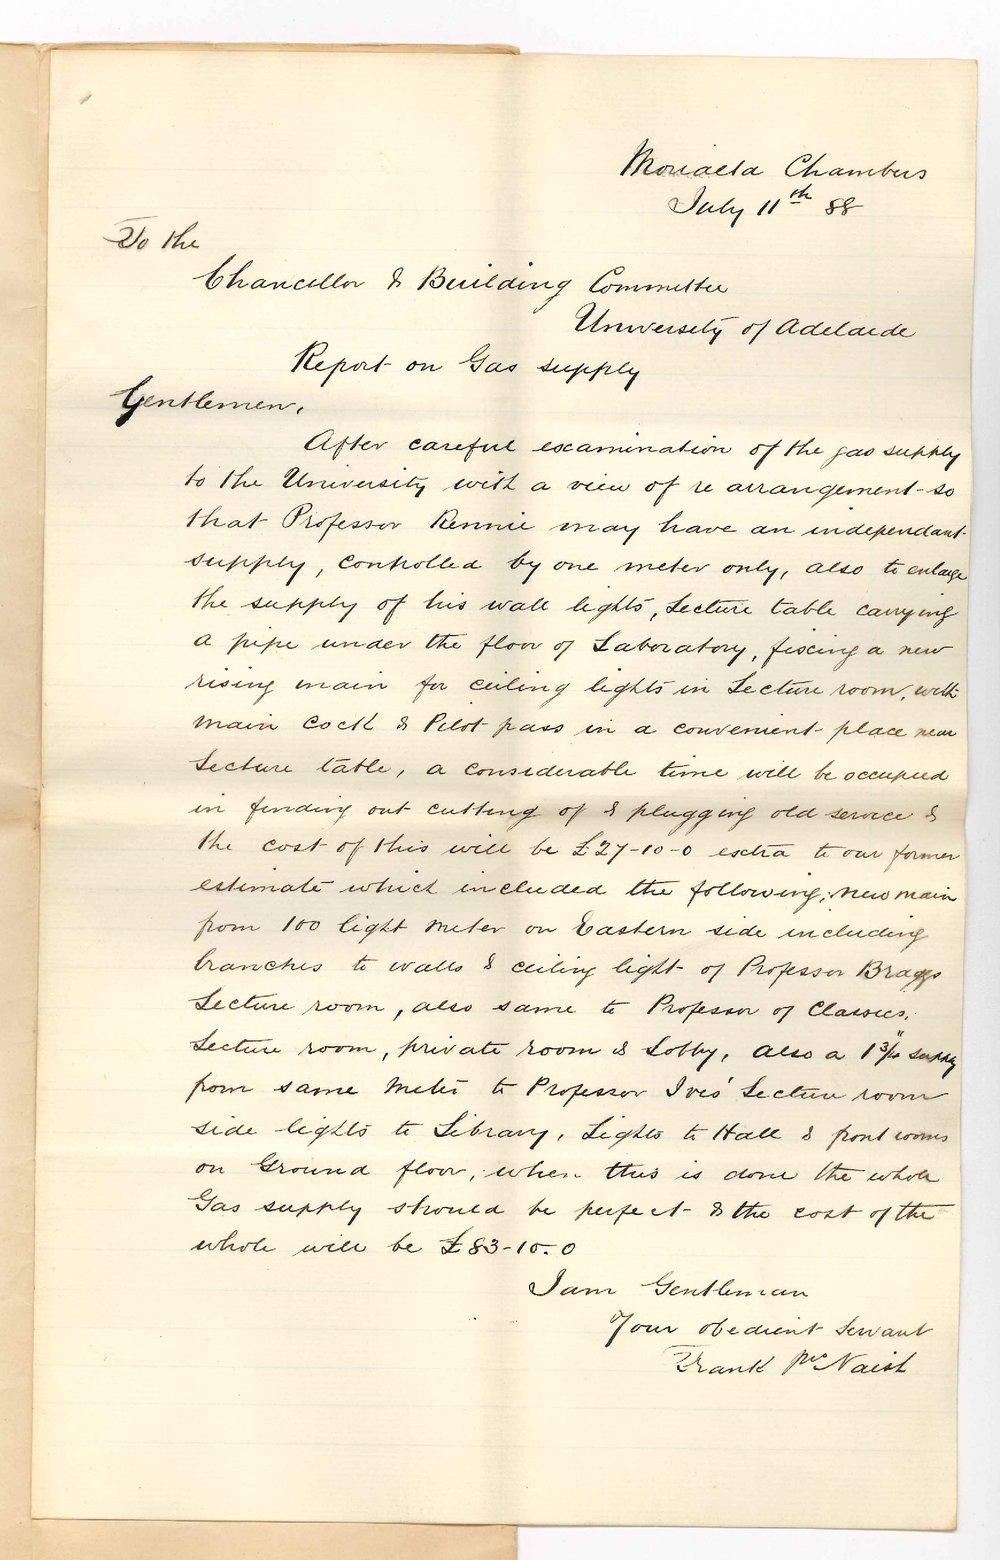 Morialta Chambers
July 11th 88
To the
Chancellor & Building Committee
University of Adelaide
Report on Gas supply
Gentlemen,
After careful examination of the gas supply
to the University with a view of re arrangement so
that Professor Rennie may have an independant
supply, controlled by one meter only, also to enlarge
the supply of his wall lights, Lecture table carrying
a pipe under the floor of Laboratory, fixing a new
rising main for ceiling lights in Lecture room, with
main cock & Pilot pass in a convenient place near
Lecture table, a considerable time will be occupied
in finding out cutting of & plugging old service &
the cost of this will be £27-10-0 extra to our former
estimate which included the following; new main
from 100 light meter on Eastern side including
branches to walls & ceiling light of Professor Braggs
Lecture room, also same to Professor of Classics,
Lecture room, private room & Lobby, also a 1 3/4" supply
from same meter to Professor Ives' Lecture room
side lights to Library, Lights to Hall & front rooms
on Ground floor, when this is done the whole
Gas supply should be perfect & the cost of the
whole will be £83-10-0
I am Gentleman
Your obedient Servant
Frank McNaish